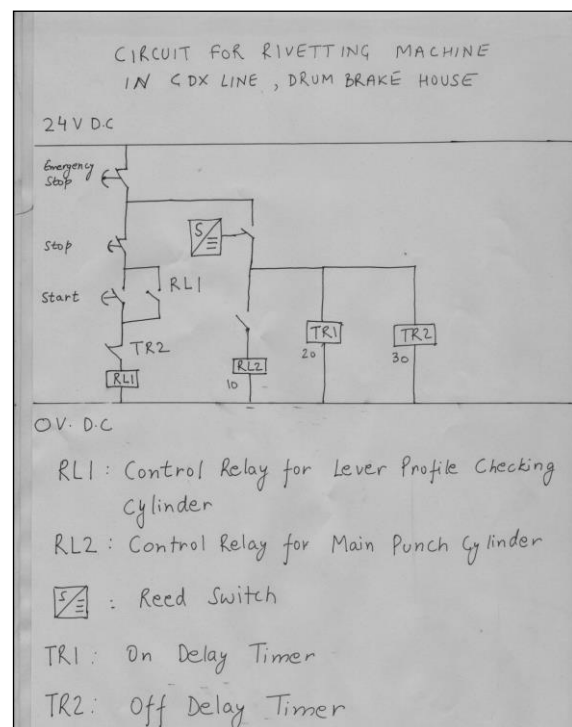 CIRCUIT FOR RIVETTING MACHINE
IN GDX LINE, DRUM BRAKE HOUSE
24V D.C
Emergency
Stop
S
Stop
RL1
Start
TR1
TR2
TR2
20
30
RL1
RL2
10
0V. D.C
RL1: Control Relay for Lever Profile Checking
Cylinder
RL2: Control Relay for Main Punch Cylinder
S : Reed Switch
TR1: On Delay Timer
TR2: Off Delay Timer